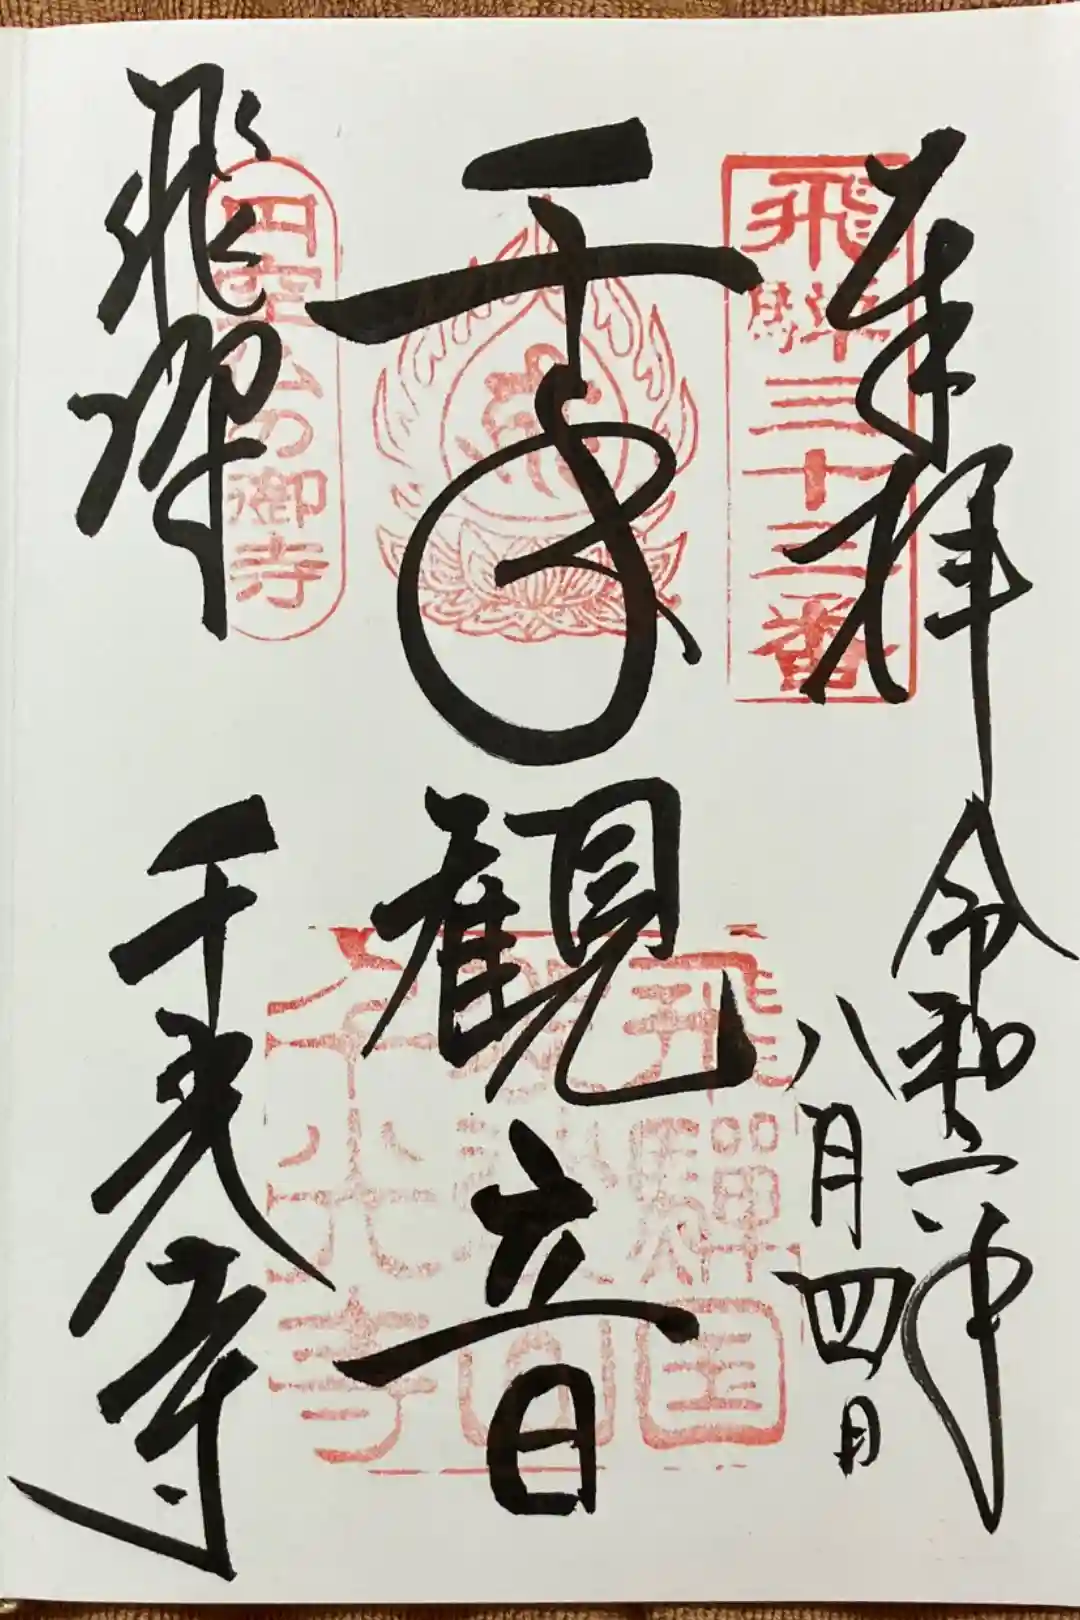 奉拝
令和二年
八月四日
飛騨三十三番
千手観音
飛騨国
千光寺
飛騨
円空仏の御寺
千光寺